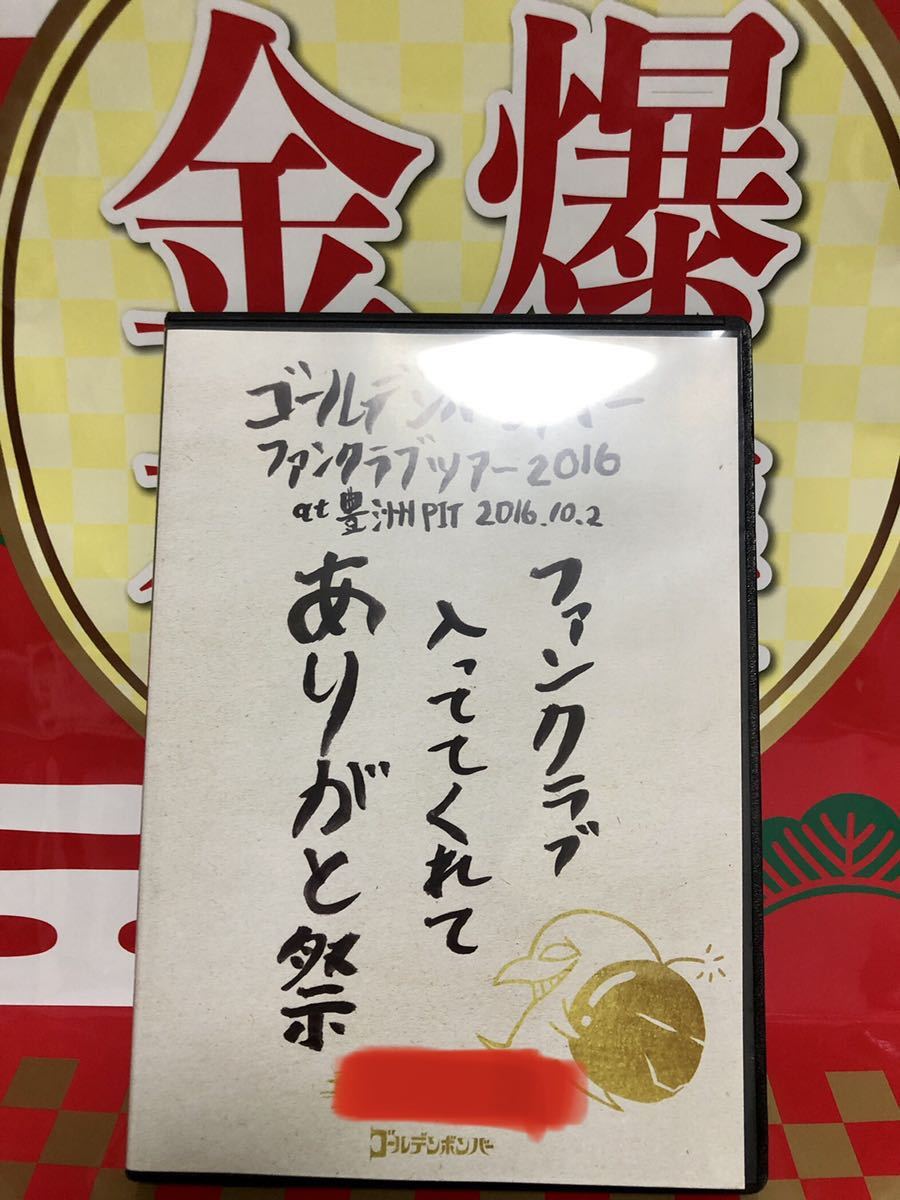 金爆
ゴールデンボンバー
ファンクラブツアー2016
at 豊洲PIT 2016.10.2
ファンクラブ
入っててくれて
ありがと祭
ゴールデンボンバー